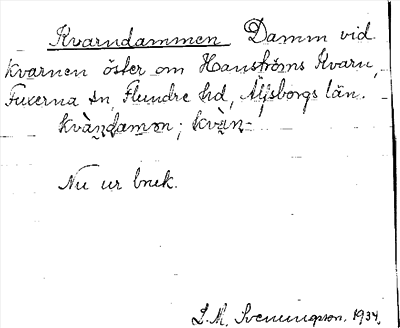 Kvarndammen Damm vid
kvarnen öster om Hanströms Kvarn,
Fuxerna sn, Flundre hd, Älfsborgs län.
kvàn̥damən; kvàn̥-
Nu ur bruk.
L. M. Svenungsson. 1934.